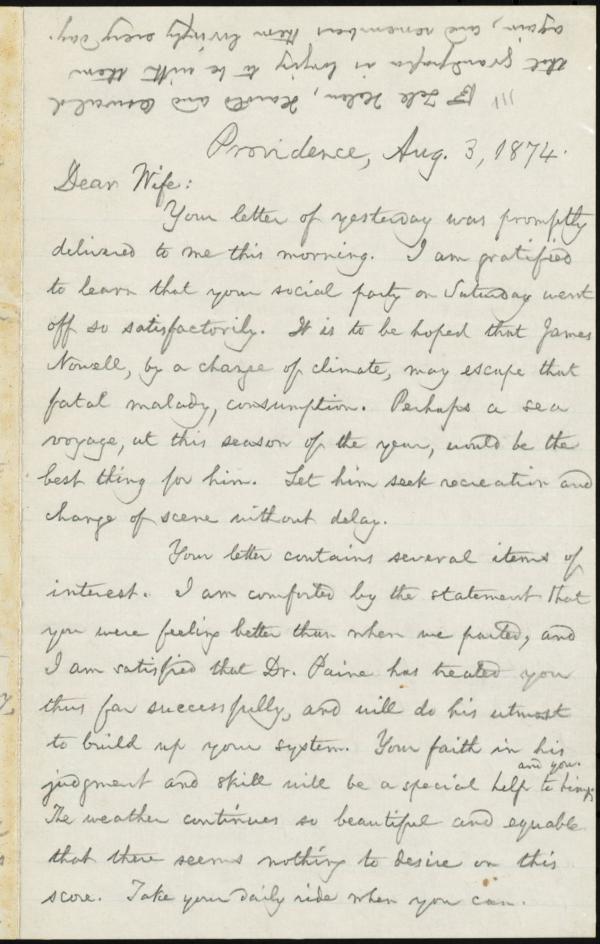 Tell Helen, Harold and Oswald
that grandpapa is longing to be with them
again, and remembers them lovingly every day.
Providence, Aug. 3, 1874.
Dear Wife:
Your letter of yesterday was promptly
delivered to me this morning. I am gratified
to learn that your social party on Saturday went
off so satisfactorily. It is to be hoped that James
Nowell, by a change of climate, may escape that
fatal malady, consumption. Perhaps a sea
voyage, at this season of the year, would be the
best thing for him. Let him seek recreation and
change of scene without delay.
Your letter contains several items of
interest. I am comforted by the statement that
you were feeling better than when we parted, and
I am satisfied that Dr. Paine has treated you
thus far successfully, and will do his utmost
to build up your system. Your faith in his
and you.
judgment and skill will be a special help to him,
The weather continues so beautiful and equable
that there seems nothing to desire on this
score. Take your daily ride when you can.